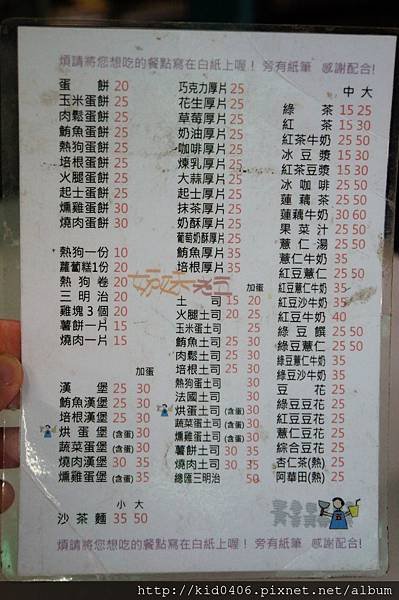 煩請將您想吃的餐點寫在白紙上喔！ 旁有紙筆 感謝配合!
蛋餅 20
玉米蛋餅 25
肉鬆蛋餅 25
鮪魚蛋餅 25
熱狗蛋餅 25
培根蛋餅 25
火腿蛋餅 25
起士蛋餅 25
燻雞蛋餅 30
燒肉蛋餅 30
熱狗一份 10
蘿蔔糕1份 20
熱狗卷 20
三明治 20
雞塊3個 20
薯餅一片 15
燒肉一片 15
加蛋
漢堡 25 30
鮪魚漢堡 25 30
培根漢堡 25 30
烘蛋堡 (含蛋) 30
蔬菜蛋堡 (含蛋) 30
燒肉漢堡 30 35
燻雞蛋堡 (含蛋) 35
小 大
沙茶麵 35 50
巧克力厚片 25
花生厚片 25
草莓厚片 25
奶油厚片 25
咖啡厚片 25
煉乳厚片 25
大蒜厚片 25
起士厚片 25
抹茶厚片 25
奶酥厚片 25
葡萄奶酥厚片 25
鮪魚厚片 35
培根厚片 35
加蛋
土司 15 20
火腿土司 20 25
玉米蛋土司 25
鮪魚土司 25 30
肉鬆土司 25 30
培根土司 25 30
熱狗蛋土司 30
法國土司 30
烘蛋土司 (含蛋) 30
蔬菜蛋土司 (含蛋) 30
燻雞蛋土司 (含蛋) 30
薯餅土司 30 35
燒肉土司 30 35
總匯三明治 50
中 大
綠茶 15 25
紅茶 15 30
紅茶牛奶 25 50
冰豆漿 15 30
紅茶豆漿 15 30
冰咖啡 25 50
蓮藕茶 25 50
蓮藕牛奶 30 60
果菜汁 25 50
薏仁湯 25 50
紅豆薏仁 25 50
薏仁牛奶 35
紅豆薏仁牛奶 35
紅豆沙牛奶 35
紅豆牛奶 40
綠豆饌 25 50
綠豆薏仁 25 50
綠豆薏仁牛奶 35
綠豆沙牛奶 35
豆花 25
綠豆豆花 25
紅豆豆花 25
薏仁豆花 25
綜合豆花 25
杏仁茶(熱) 25
阿華田(熱) 25
煩請將您想吃的餐點寫在白紙上喔！ 旁有紙筆 感謝配合!
http://kid0406.pixnet.net/album